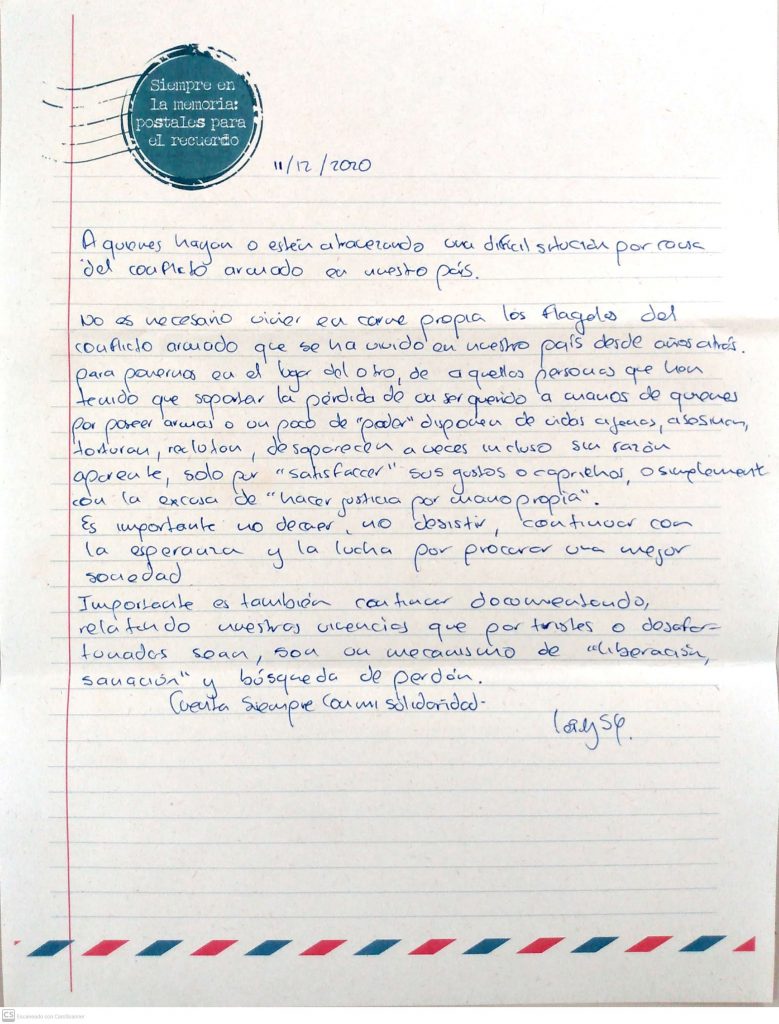 Siempre en
la memoria:
postales para
el recuerdo
11/12/2020
A quienes hayan o estén atravezando una difícil situción por causa
del conflicto armado en nuestro país.
No es necesario vivier en carne propia los flagelos del
conflicto armado que se ha vivido en nuestro país desde años atrás.
para ponernos en el lugar del otro, de aquellas personas que han
tenido que soportar la pérdida de un ser querido a manos de quienes
por poseer armas o un poco de "poder" disponen de vidas ajenas, asesinan,
torturan, reclutan, desaparecen a veces incluso sin razón
aparente, solo por "satisfaccer" sus gustos o caprichos, o simplement
con la excusa de "hacer justicia por mano propia".
Es importante no decaer, no desistir, continuar con
la esperanza y la lucha por procurar una mejor
sociedad
Importante es también continuar documentando,
relatando nuestras vivencias que por tristes o desafor-
tunadas sean, son un mecanismo de "liberación,
sanación" y búsqueda de perdón.
Cuenta siempre con mi solidaridad-
CS Escaneado con CamScanner